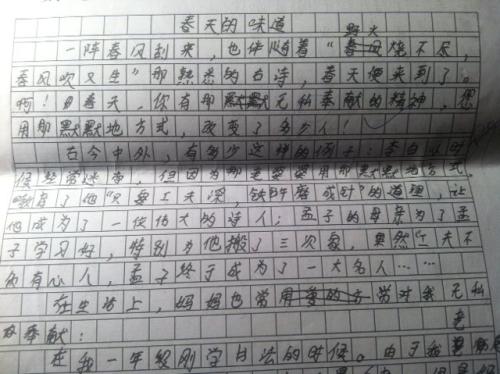 春天的味道
一阵春风刮来，也伴随着"野火烧不尽，
春风吹又生"那熟悉的古诗，春天便来到了。
啊！春天，你有那默默无私奉献的精神，您
用那默默地方式，改变了多少人！
古今中外，有多少这样的例子：李白小时
候经常逃学，但因为那老婆婆用那默默地方式，
教育了他"只要工夫深，铁杵磨成针"的道理，让
他成为了一位伟大的诗人；孟子的母亲为了孟
子学习好，特别为他搬了三次家，果然"工夫不
负有心人，孟子终于成为了一大名人……
在生活上，妈妈也常常对我无私
奉献：
在我一年级刚学书法的时候。由于我老